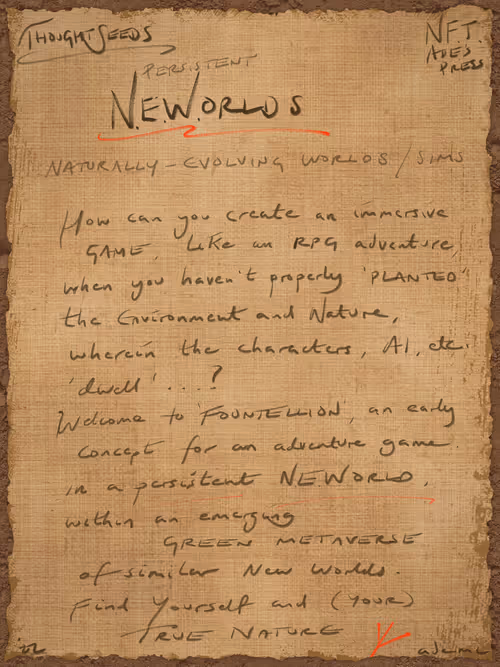 THOUGHTSEEDS
NFT.
ADES
PRESS
PERSISTENT
N.E.W.ORLDS
NATURALLY-EVOLVING WORLDS/SIMS
How can you create an immersive
GAME, like an RPG adventure,
when you haven't properly 'PLANTED'
the Environment and Nature,
wherein the characters, AI, etc.
'dwell'...?
Welcome to 'FOUNTELLION', an early
concept for an adventure game
in a persistent N.E.W.ORLD,
within an emerging
GREEN METAVERSE
of similar New Worlds.
Find Yourself and (YOUR)
TRUE NATURE
'22